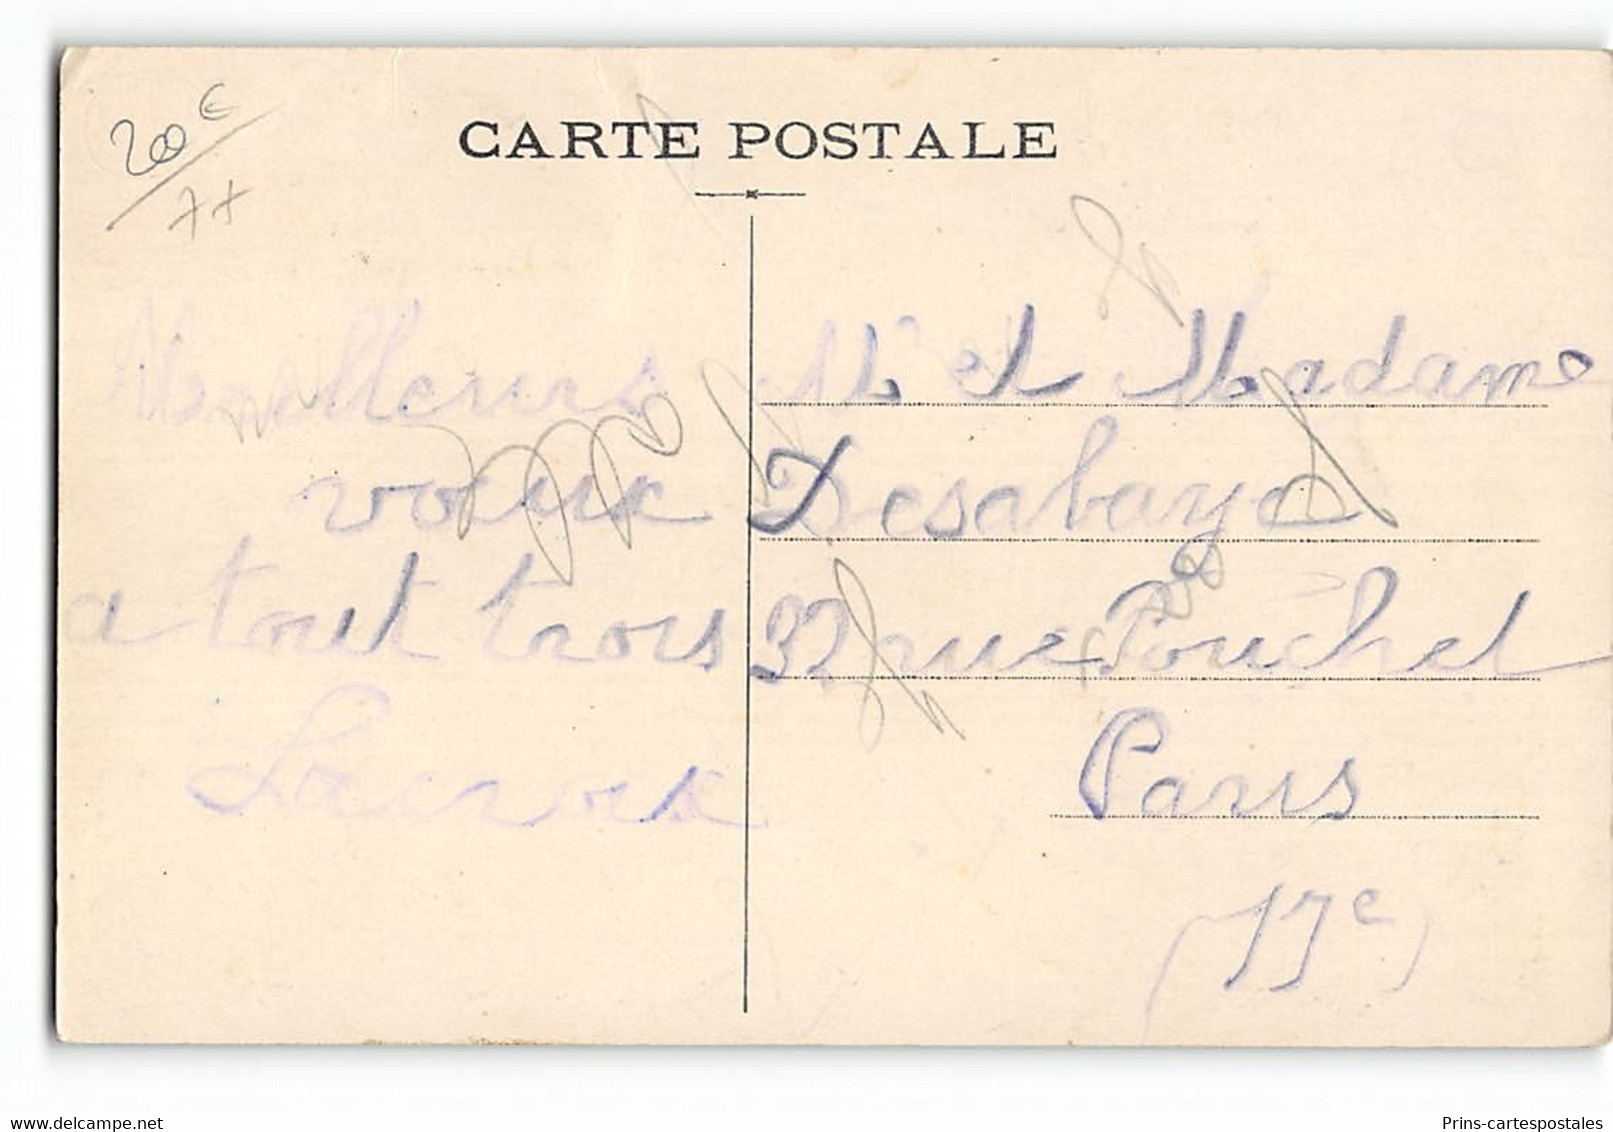 200 €
77
CARTE POSTALE
Meilleurs
voeux
a tout trois
Lacroix
Mr et Madame
Desabaye
32 rue Pouchet
Paris
(17e)
delcampe.net
Prins-cartespostales